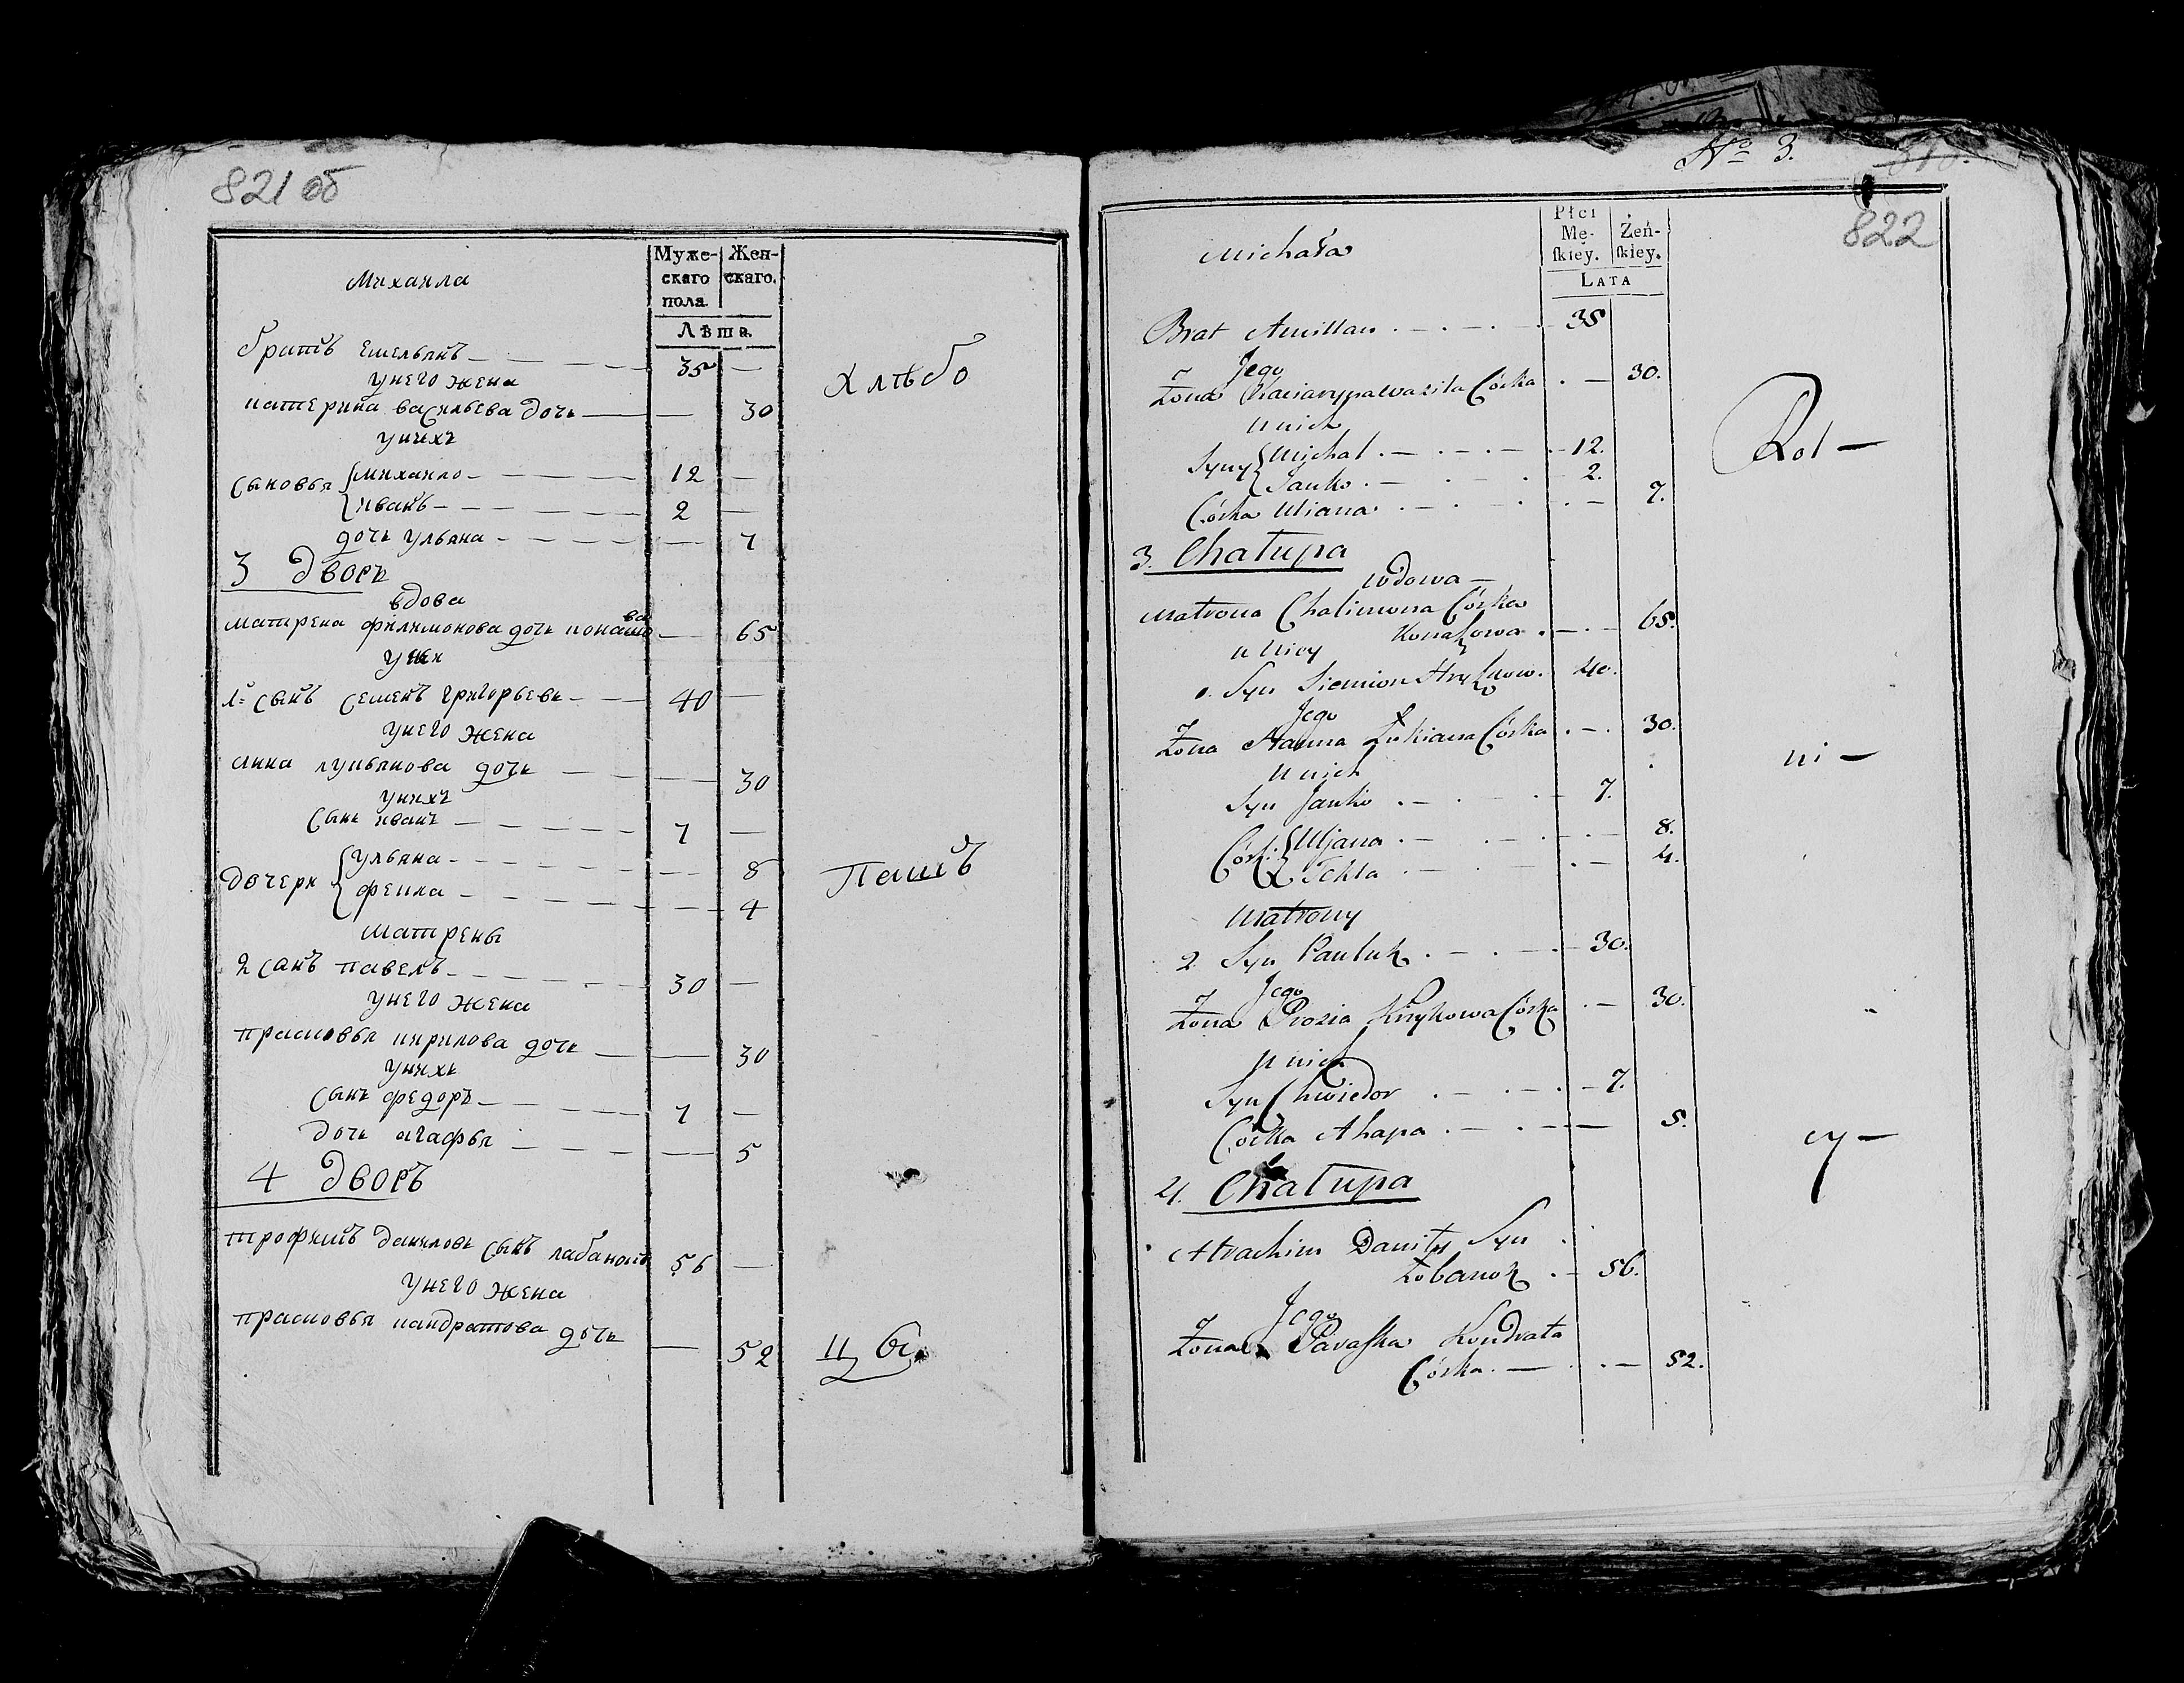 821 об
Михаила
Муже-
скаго
пола.
Жен-
скаго.
Лѣта.
братъ емельянъ 35
унего жена
катерина васильева дочь 30
унихъ
сыновья михаило 12
иванъ 2
дочь ульяна 7
3 дворъ
вдова
матрена филимонова дочь конашова 65
унея
1й сынъ семенъ григорьевъ 40
унего жена
анна лукьянова дочь 30
унихъ
сынъ иванъ 7
дочери ульяна 8
фекла 4
матрены
2 сынъ павелъ 30
унего жена
прасковья кирилова дочь 30
унихъ
сынъ федоръ 7
дочь агафья 5
4 дворъ
трофимъ даниловъ сынъ лабанокъ 56
унего жена
прасковья кандратова дочь 52
Хлѣбо
Пашъ
цы
№ 3.
822
Michała
Płci
Mę-
ſkiey.
Żeń-
ſkiey.
LATA
Brat Amillan 35
Jego
Żona Kaciaryna Wasila Córka 30.
U nich
Syny Michal 12.
Janko 2.
Córka Uliana 7.
3. Chałupa
Wdowa
Matrona Chalimona Córka
Konaszowa 65.
U Niey
Syn Siemion Hryhow. 40.
Jego
Żona Hanna Łukiana Córka 30.
U nich
Syn Janko 7.
Córki Uljana 8.
Tekla 4.
Matrony
2. Syn Pauluk 30.
Jego
Żona Prozia Kirykowa Córka 30.
U nich
Syn Chwiedor 7.
Córka Ahapa 5.
4. Chałupa
Atrachim Daniły Syn
Łobanok 56.
Jego
Żona Paraſka Kondrata
Córka 52.
Rol—
ni—
cy—